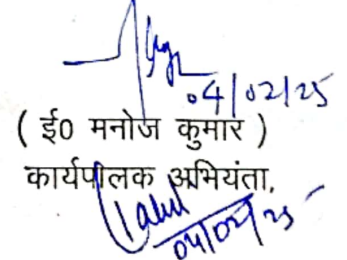 04/02/25
( ई0 मनोज कुमार )
कार्यपालक अभियंता,
04/02/25